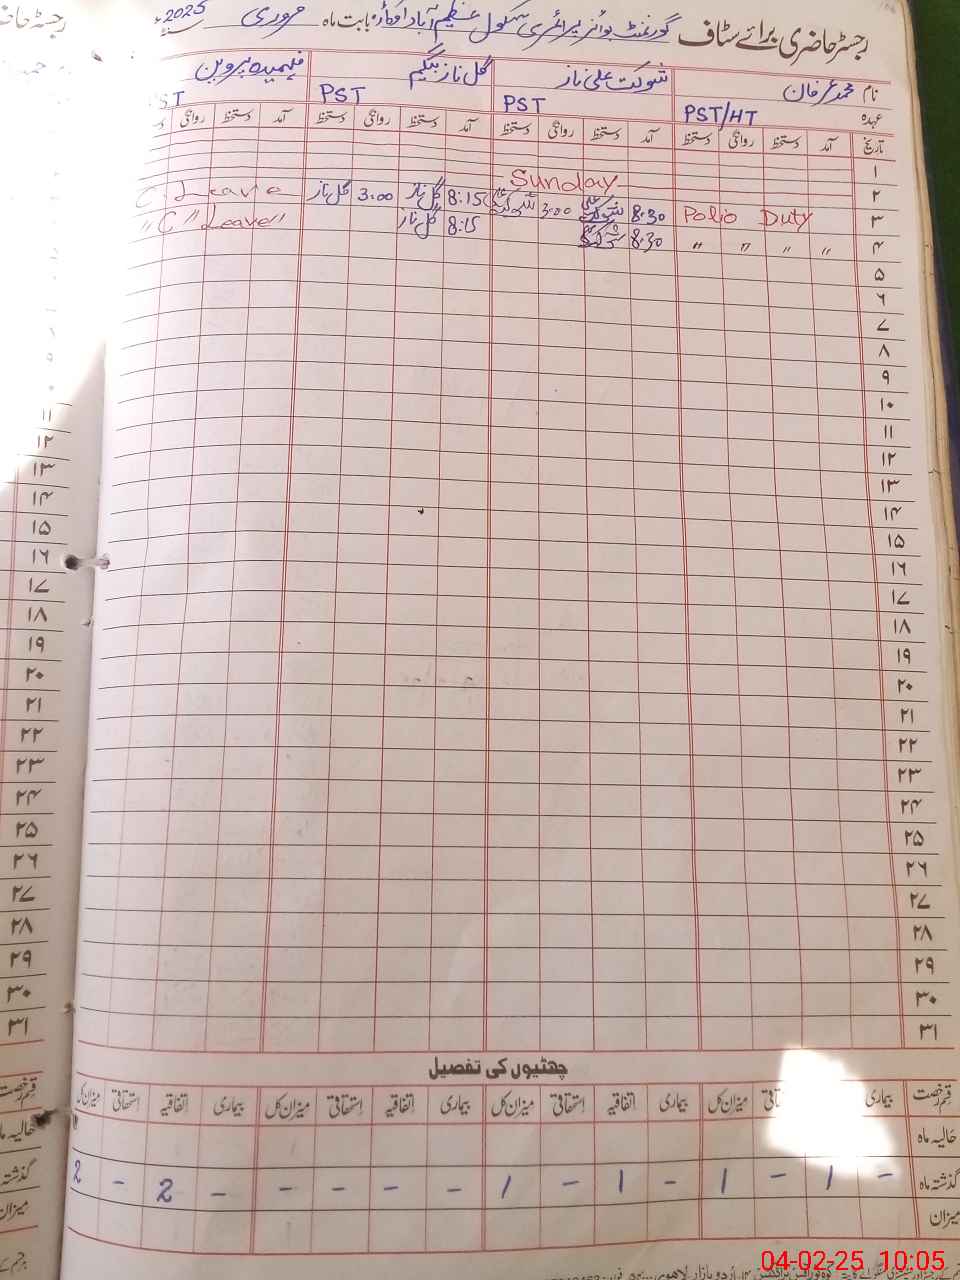 رجسٹر حاضری برائے سٹاف گورنمنٹ بوائز پرائمری سکول عظیم آباد بابت ماہ فروری 2025
نام محمد عرفان شوکت علی ناز گل ناز بیگم فہمیدہ پروین
عہدہ PST/HT PST PST ST
تاریخ آمد دستخط روانگی دستخط آمد دستخط روانگی دستخط آمد دستخط روانگی دستخط آمد دستخط روانگی
۱ Sunday
۲
۳ Polio Duty 8:30 شوکت علی 3:00 شوکت علی 8:15 گل ناز 3:00 گل ناز C. Leave
۴ " " " " 8:30 8:15 گل ناز "C" Leave"
۵
۶
۷
۸
۹
۱۰
۱۱
۱۲
۱۳
۱۴
۱۵
۱۶
۱۷
۱۸
۱۹
۲۰
۲۱
۲۲
۲۳
۲۴
۲۵
۲۶
۲۷
۲۸
۲۹
۳۰
۳۱
چھٹیوں کی تفصیل
قسم رخصت بیماری میزان کل بیماری اتفاقیہ استحقاقی میزان کل بیماری اتفاقیہ استحقاقی میزان کل بیماری اتفاقیہ استحقاقی میزان کل
حالیہ ماہ
گذشتہ ماہ - 1 - 1 - 1 - 1 - - - - - 2 - 2
میزان
۱۱
۱۲
۱۳
۱۴
۱۵
۱۶
۱۷
۱۸
۱۹
۲۰
۲۱
۲۲
۲۳
۲۴
۲۵
۲۶
۲۷
۲۸
۲۹
۳۰
۳۱
قسم رخصت
حالیہ ماہ
گذشتہ
میزان
04-02-25 10:05